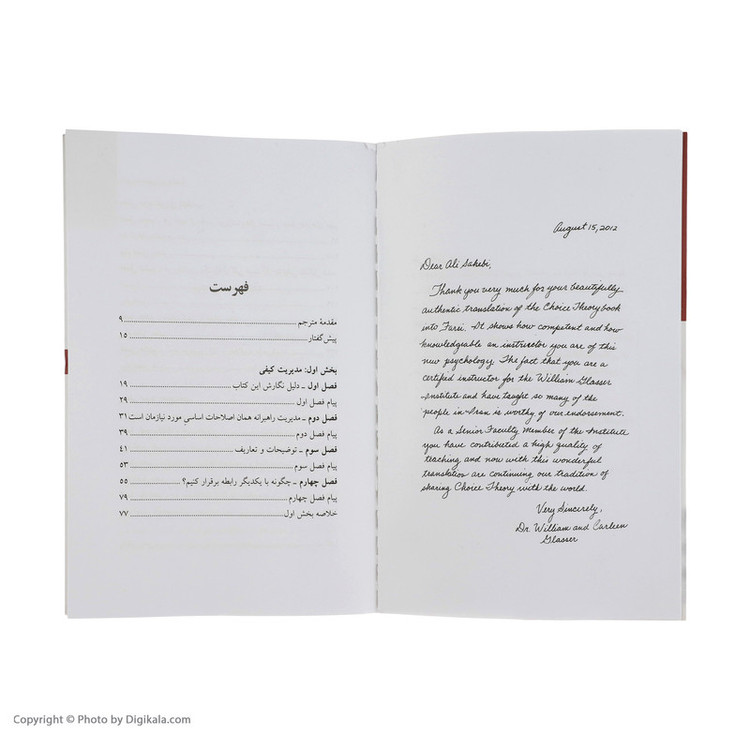 August 15, 2012
Dear Ali Sahebi,
Thank you very much for your beautifully
authentic translation of the Choice Theory book
into Farsi. It shows how competent and how
knowledgeable an instructor you are of this
new psychology. The fact that you are a
certified instructor for the William Glasser
Institute and have taught so many of the
people in Iran is worthy of our endorsement.
As a Senior Faculty Member of the Institute
you have contributed a high quality of
teaching and now with this wonderful
translation are continuing our tradition of
sharing Choice Theory with the world.
Very Sincerely,
Dr. William and Carleen
Glasser
فهرست
مقدمهٔ مترجم ۹
پیش‌گفتار ۱۵
بخش اول: مدیریت کیفی
فصل اول ـ دلیل نگارش این کتاب ۱۹
پیام فصل اول ۲۹
فصل دوم ـ مدیریت راهبرانه همان اصلاحات اساسی مورد نیازمان است ۳۱
پیام فصل دوم ۳۹
فصل سوم ـ توضیحات و تعاریف ۴۱
پیام فصل سوم ۵۳
فصل چهارم ـ چگونه با یکدیگر رابطه برقرار کنیم؟ ۵۵
پیام فصل چهارم ۷۹
خلاصه بخش اول ۷۷
Copyright © Photo by Digikala.com